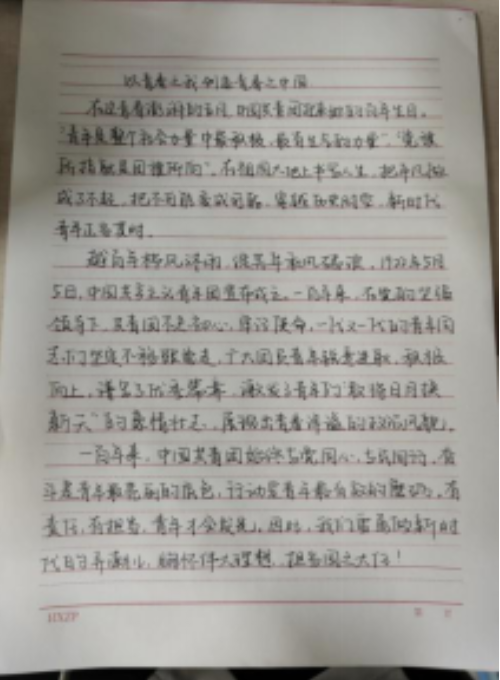 以青春之我创造青春之中国
在这青春澎湃的五月,中国共青团迎来她的百年生日。
"青年是整个社会力量中最积极、最有生气的力量","党旗
所指就是团旗所向"。在祖国大地上书写人生,把平凡做
成了不起,把不可能变成可能,穿越历史时空,新时代
青年正当其时。
越百年栉风沐雨,强青年乘风破浪。1922年5月
5日,中国共产主义青年团宣布成立。一百年来,在党的坚强
领导下,共青团不忘初心、牢记使命,一代又一代的青年团
员们坚定不移跟党走,广大团员青年锐意进取、积极
向上,谱写了代序篇章,激发了青年的"敢将日月换
新天"的豪情壮志,展现出青春洋溢的精神风貌。
一百年来,中国共青团始终与党同心、与民同行,奋
斗是青年最亮丽的底色,行动是青年最有效的磨砺,有
责任有担当,青年才会闪光。因此,我们要做新时
代的弄潮儿,胸怀伟大理想,担当国之大任!
HXZP
第 页